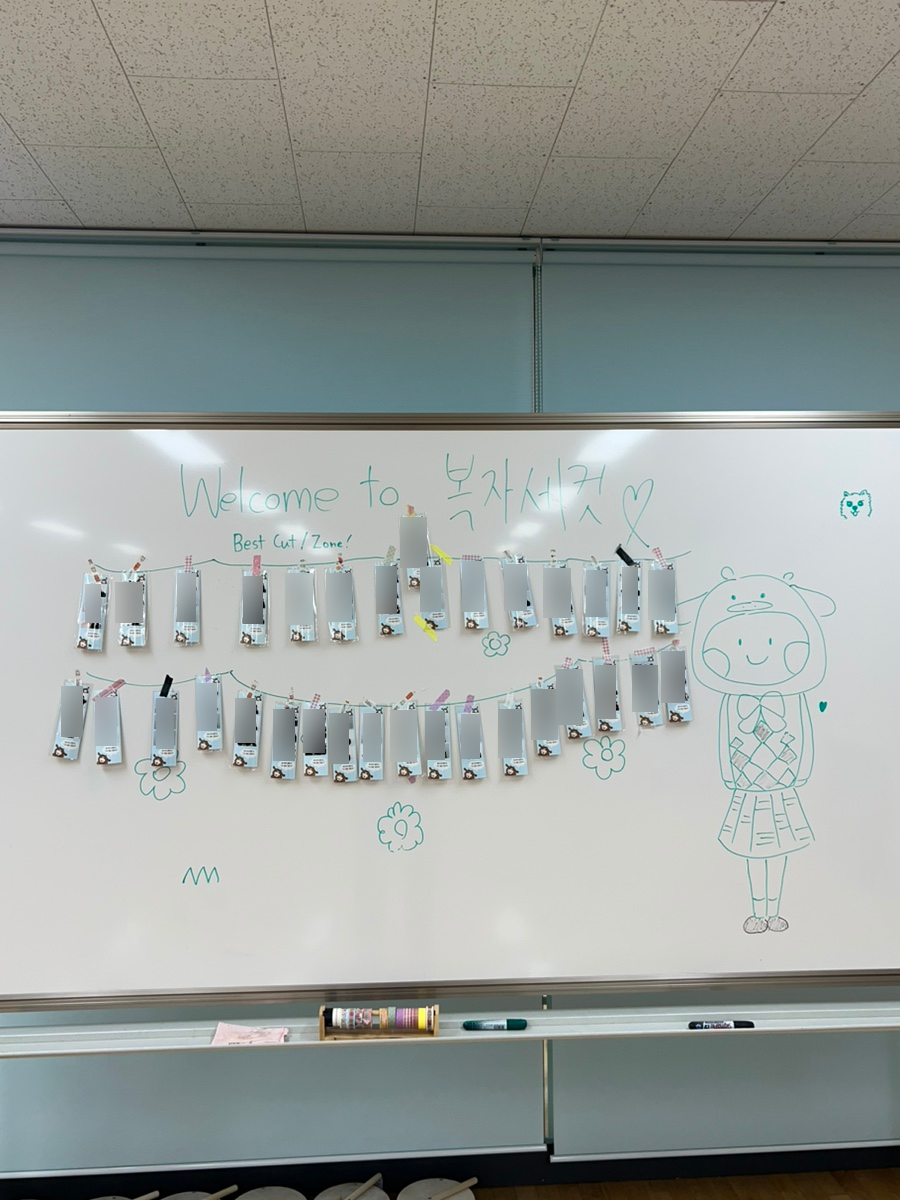 Welcome to 복자세컷♡
Best Cut! Zone!